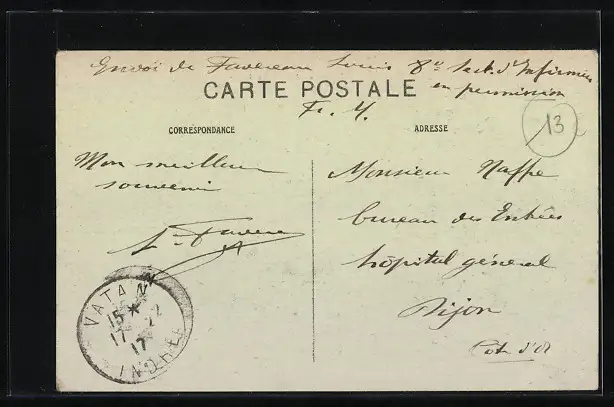 Envoi de Favereau Louis 8e Sect. d'Infirmiers
en permission
CARTE POSTALE
F. M.
13
CORRESPONDANCE
ADRESSE
Mon meilleur
souvenir
L. Favere
Monsieur Naffre
bureau des Entrées
hôpital général
Dijon
Cote d'Or
VATAN
15 *
17 - 12
17
INDRE